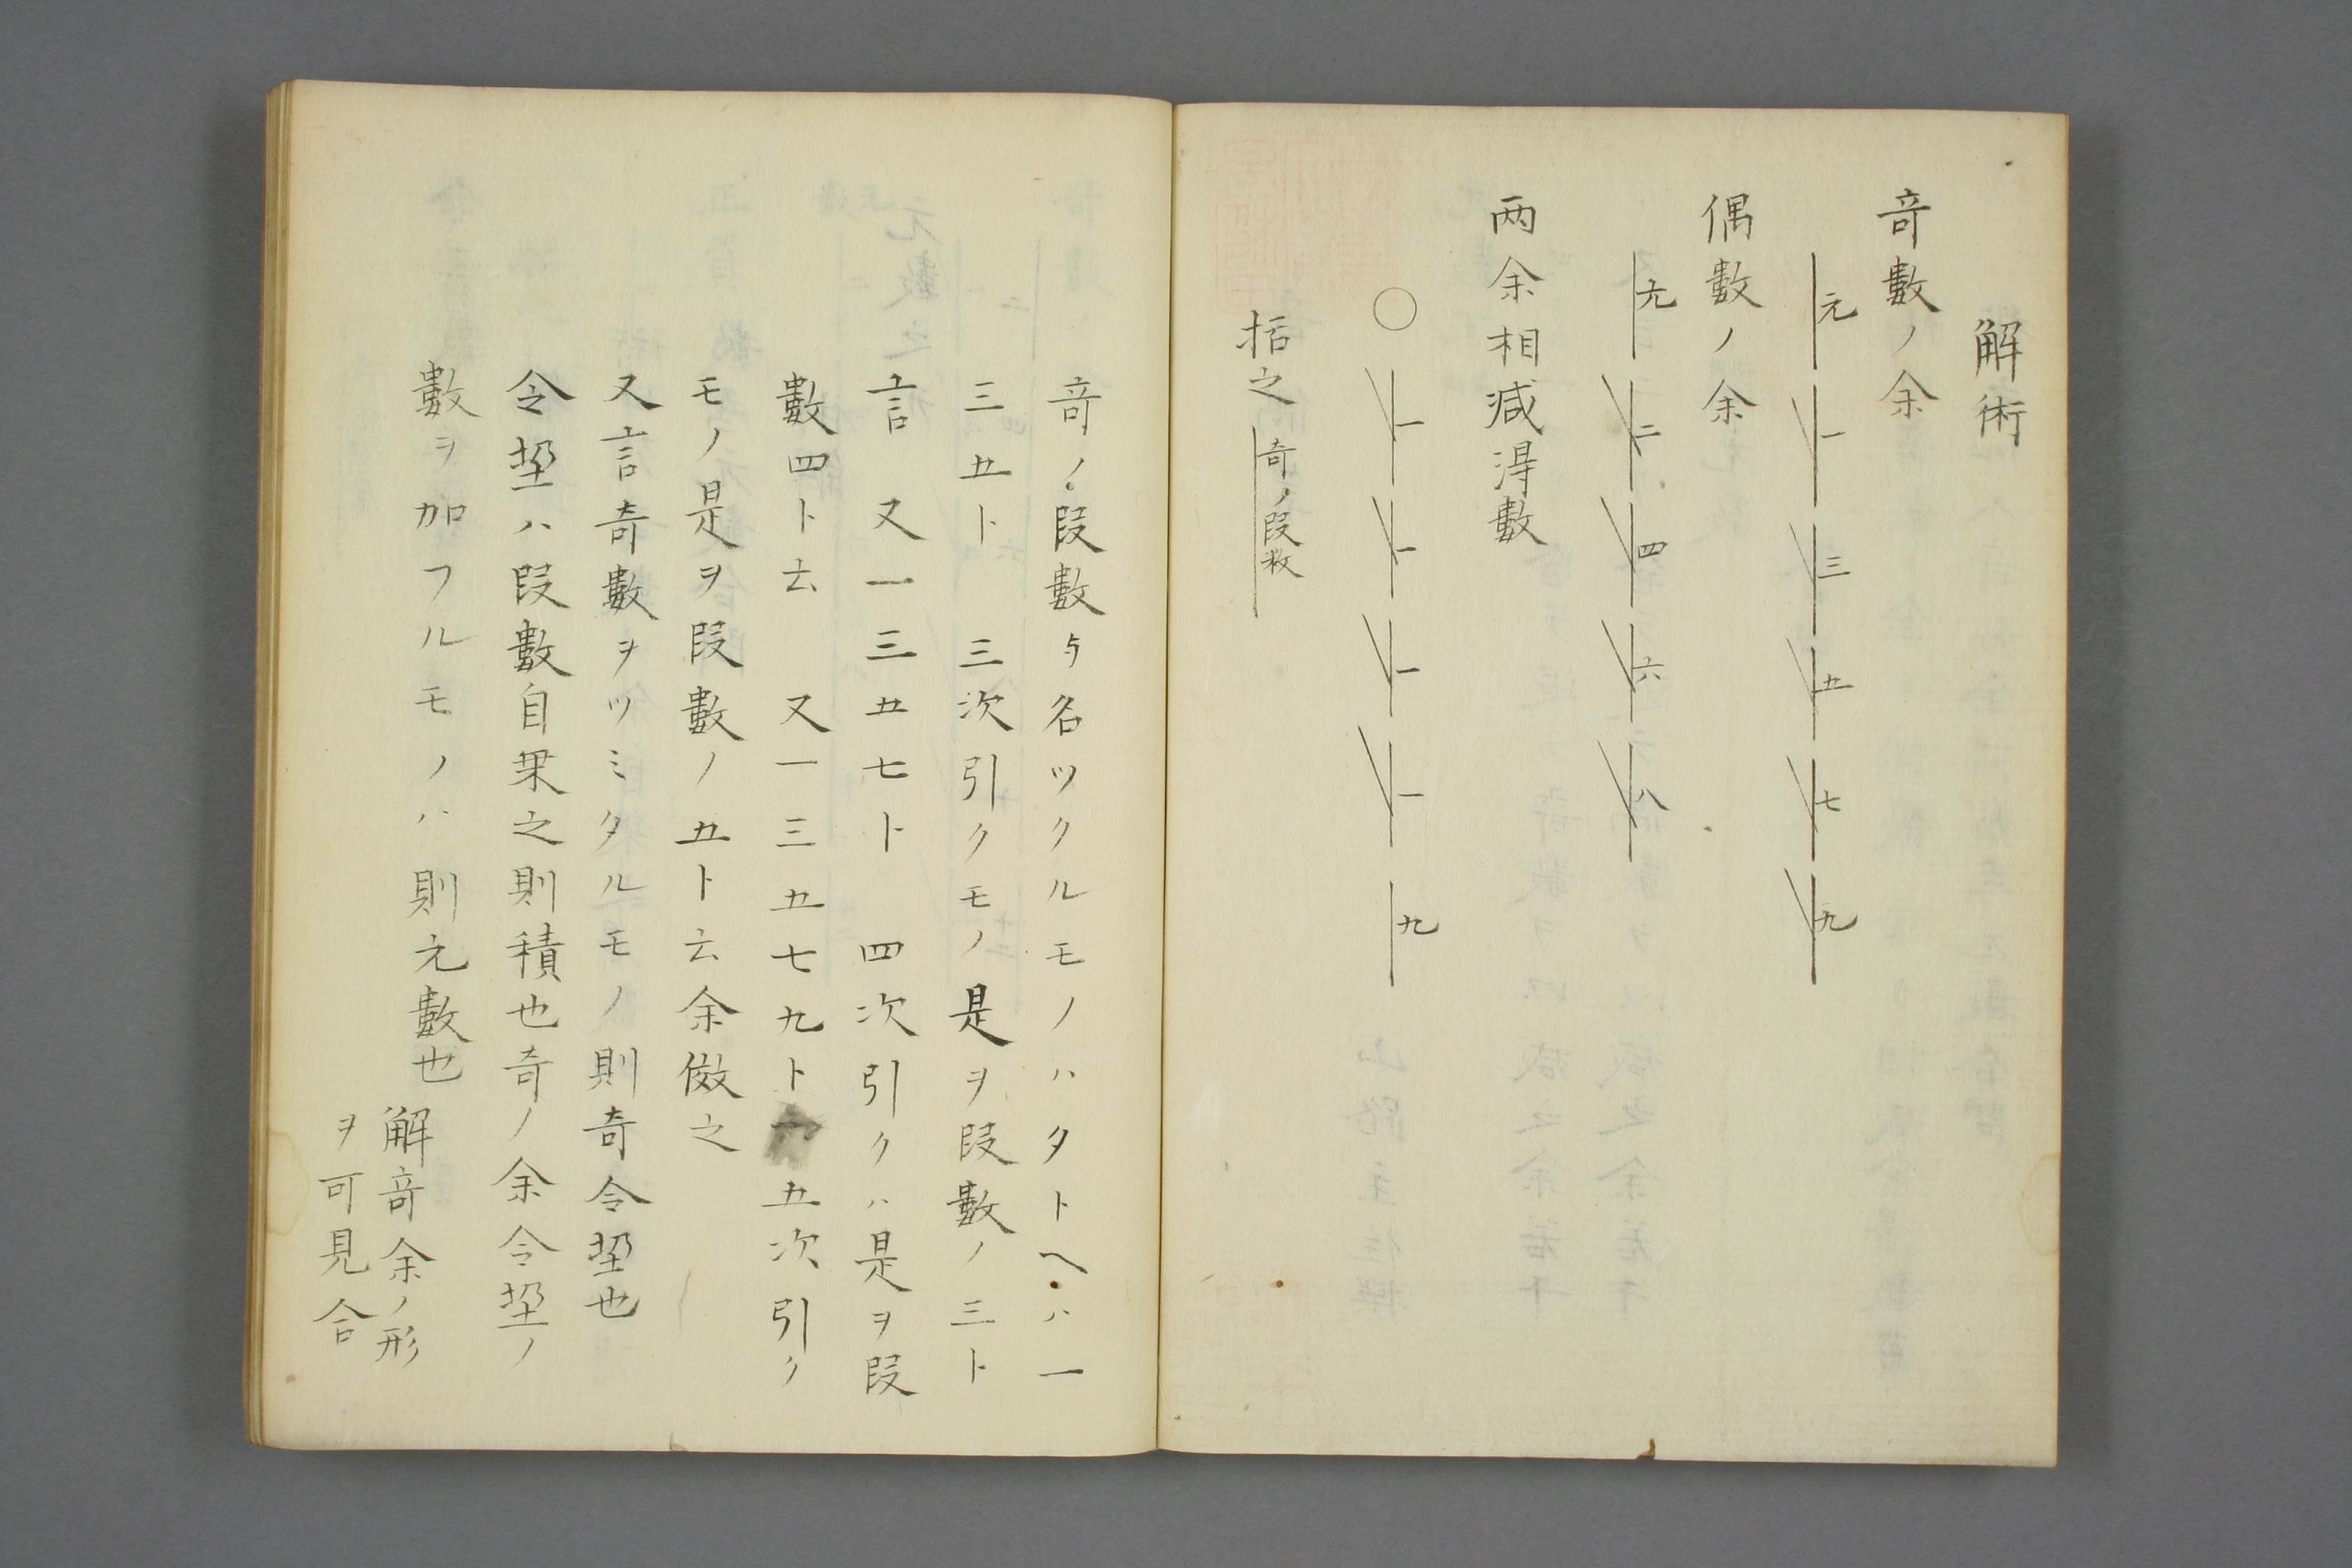 解術
奇數ノ余
元 一 三 五 七 九
偶數ノ余
元 二 四 六 八
両余相减得數
〇 一 一 一 一 九
括之 奇ノ段数
奇ノ段數与名ツクルモノハタトヘハ一
三五ト 三次引クモノ是ヲ段數ノ三ト
言 又一三五七ト 四次引クハ是ヲ段
數四ト去 又一三五七九ト 五次引ク
モノ是ヲ段數ノ五ト云余倣之
又言奇數ヲツミタルモノ則奇令垜也
令垜ハ段數自乗之則積也奇ノ余令垜ノ
數ヲ加フルモノハ則元數也
解奇余ノ形
ヲ可見合